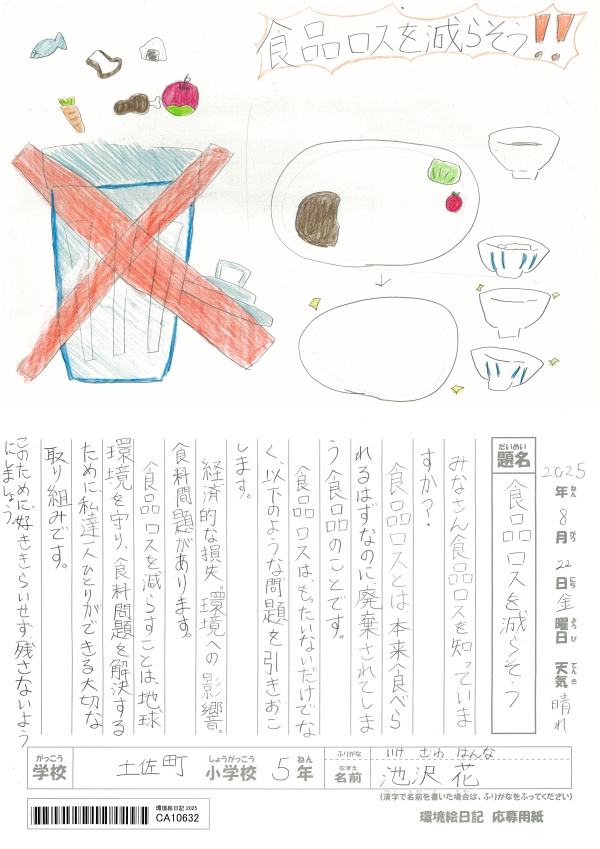 食品ロスを減らそう!!
2025年8月22日金曜日 天気 晴れ
ねん がつ にち ようび てんき
だいめい
題名
食品ロスを減らそう
みなさん食品ロスを知っていま
すか?
食品ロスとは、本来食べら
れるはずなのに廃棄されてしま
う食品のことです。
食品ロスは、もったいないだけでな
く、以下のような問題を引きおこ
します。
経済的な損失。環境への影響。
食料問題があります。
食品ロスを減らすことは、地球
環境を守り、食料問題を解決する
ために、私達一人ひとりができる大切な
取り組みです。
このために、好ききらいせず、残さないよう
にしましょう。
がっこう しょうがっこう ねん
学校 土佐町 小学校 5年
ふりがな いけ ざわ はんな
なまえ
名前 池沢 花
(漢字で名前を書いた場合は、ふりがなをふってください)
環境絵日記2025
CA10632
環境絵日記 応募用紙